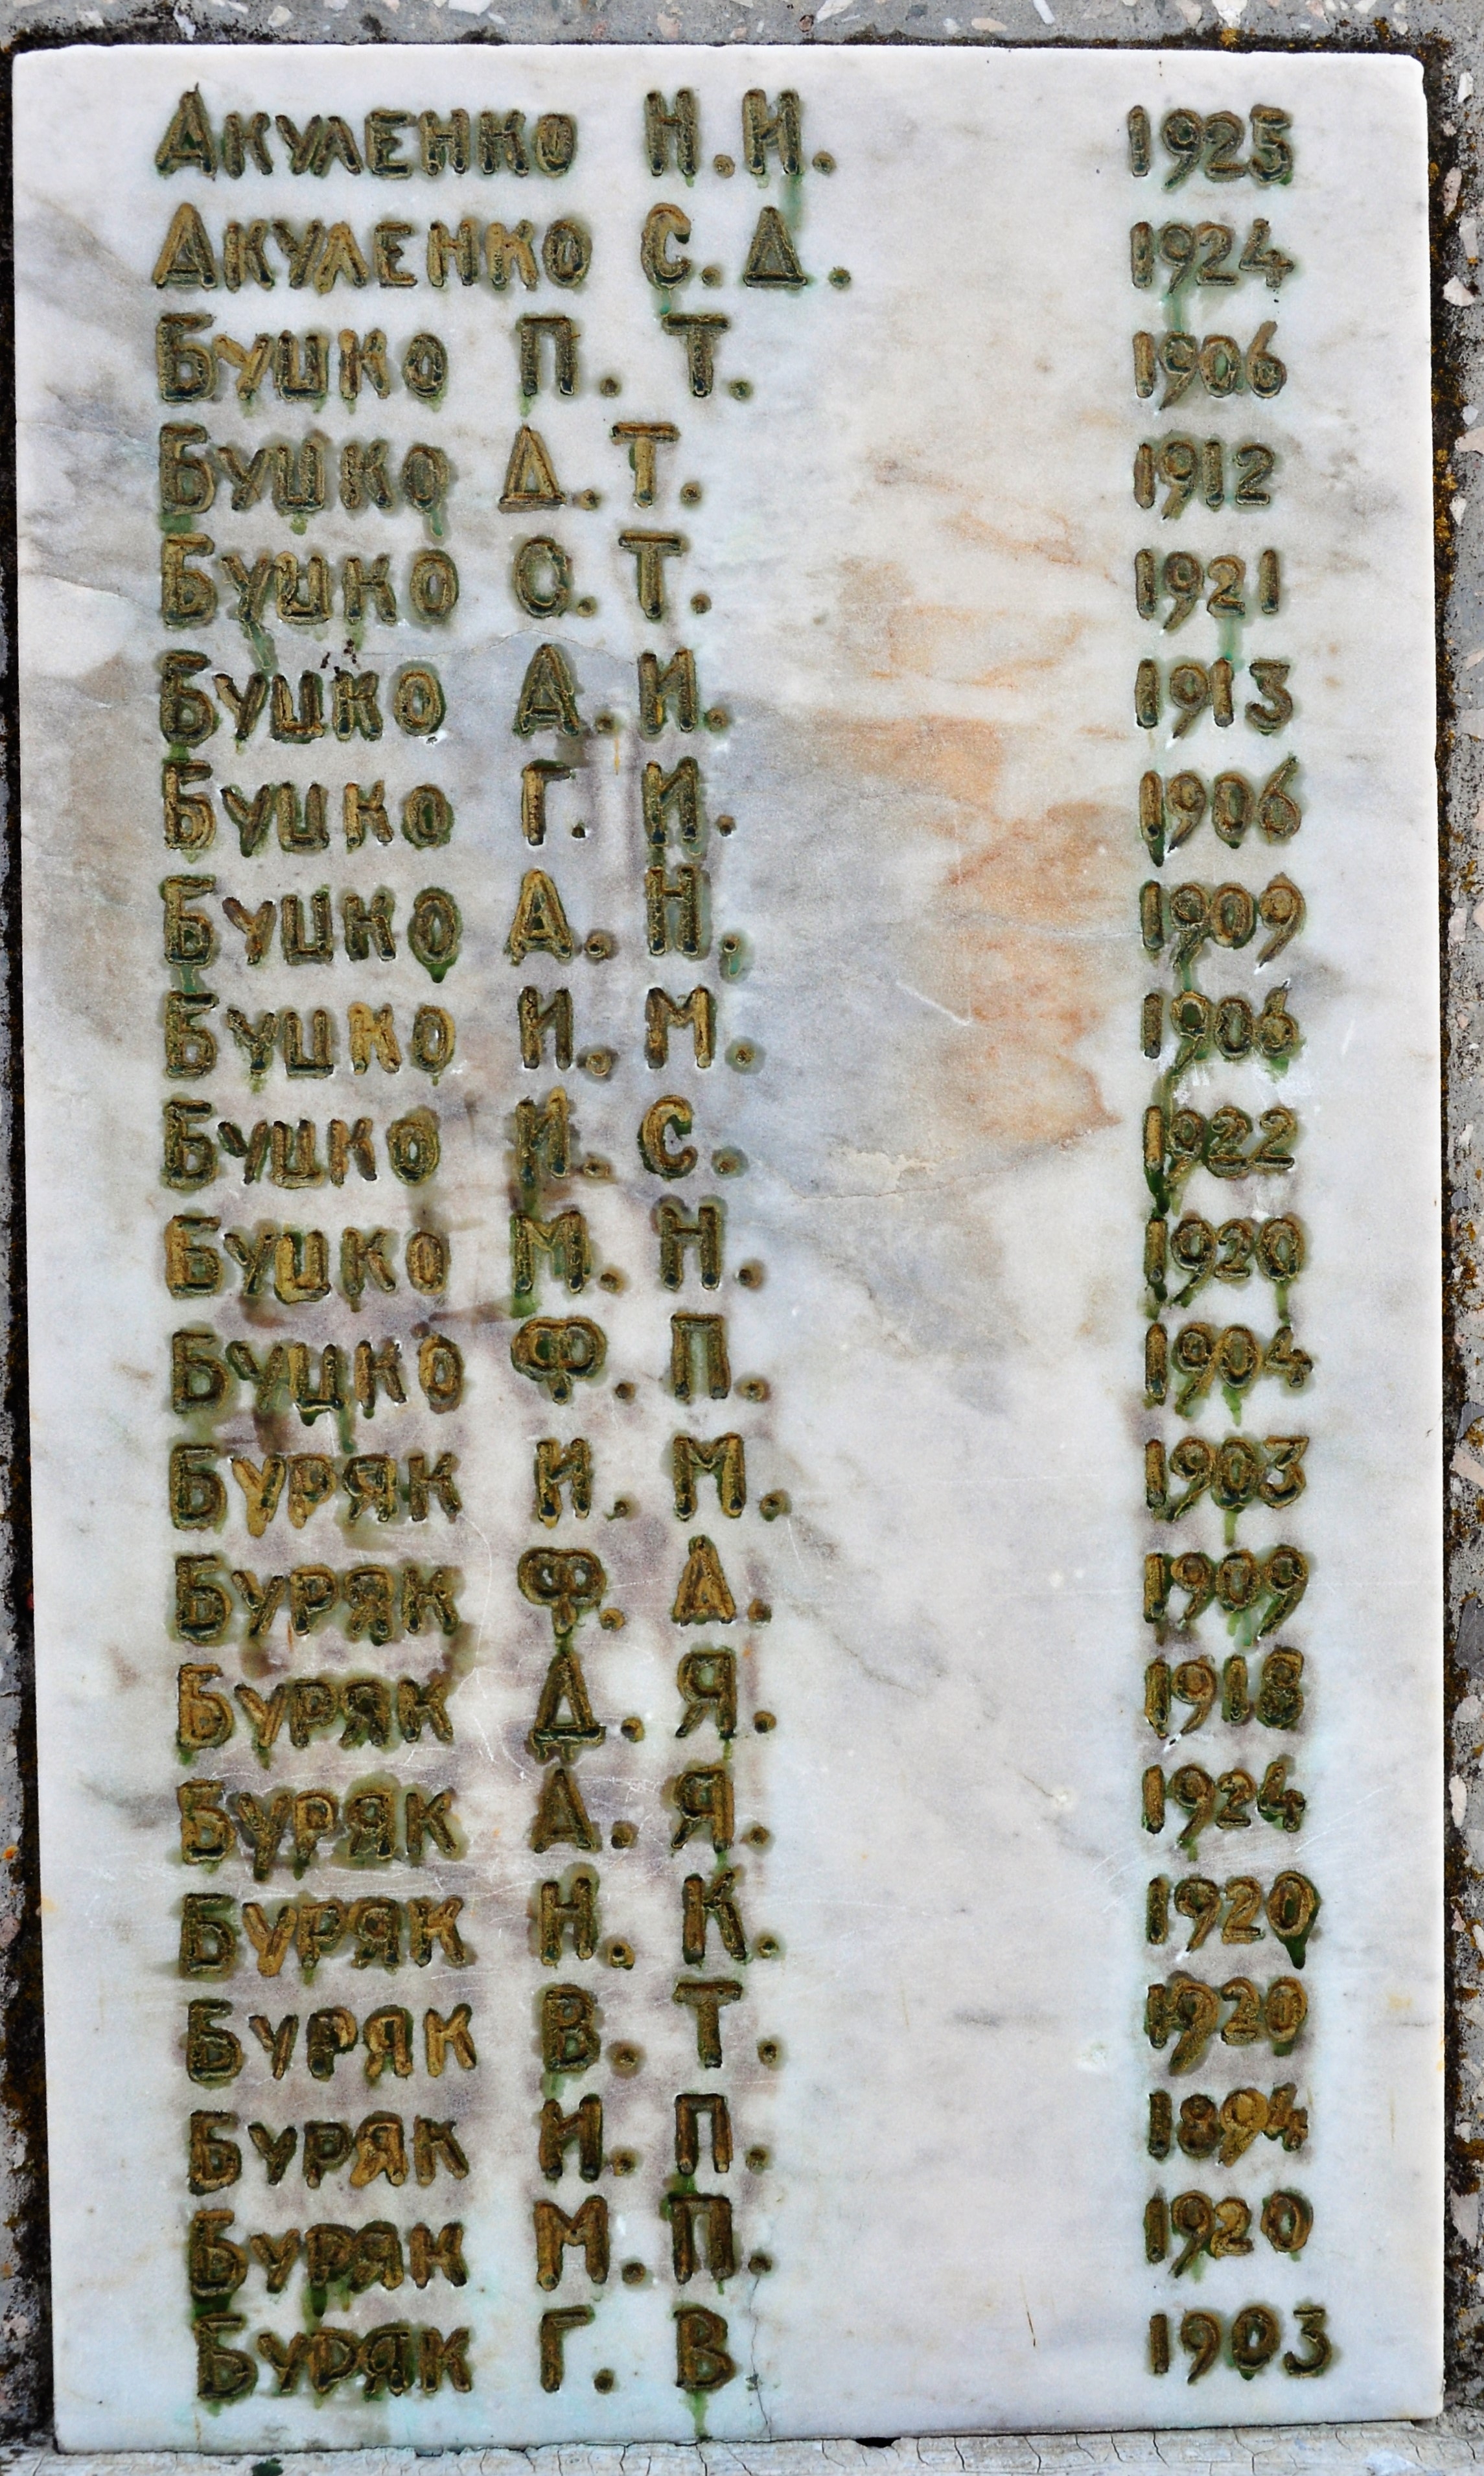 Акуленко Н.И. 1925
Акуленко С.Д. 1924
Бушко П.Т. 1906
Бушко Д.Т. 1912
Бушко О.Т. 1921
Бушко А.И. 1913
Бушко Г.И. 1906
Бушко А.Н. 1909
Бушко И.М. 1906
Бушко И.С. 1922
Бушко М.Н. 1920
Бушко Ф.П. 1904
Буряк И.М. 1903
Буряк Ф.А. 1909
Буряк Д.Я. 1918
Буряк А.Я. 1924
Буряк Н.К. 1920
Буряк В.Т. 1920
Буряк И.П. 1894
Буряк М.П. 1920
Буряк Г.В 1903